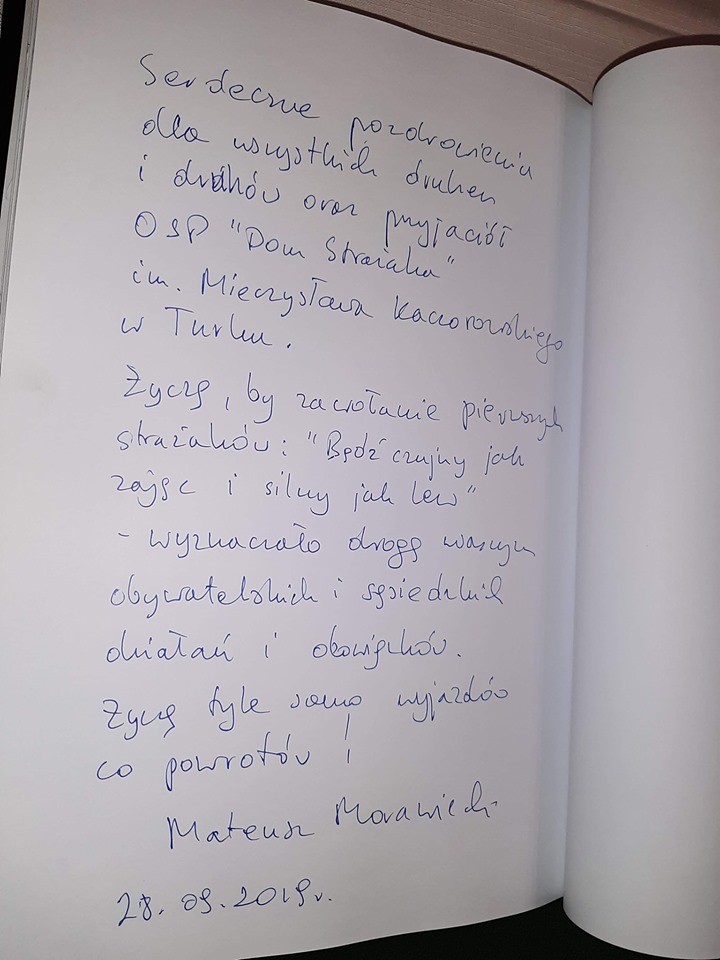 Serdeczne pozdrowienia
dla wszystkich druhen
i druhów oraz przyjaciół
OSP "Dom Strażaka"
im. Mieczysława Kaczorowskiego
w Turku.
Życzę, by zawołanie pierwszych
strażaków: "Bądź czujny jak
zając i silny jak lew"
- wyznaczało drogę waszym
obywatelskich i sąsiedzkich
działań i obowiązków.
Życzę tyle samo wyjazdów
co powrotów!
Mateusz Morawiecki
28.09.2019r.